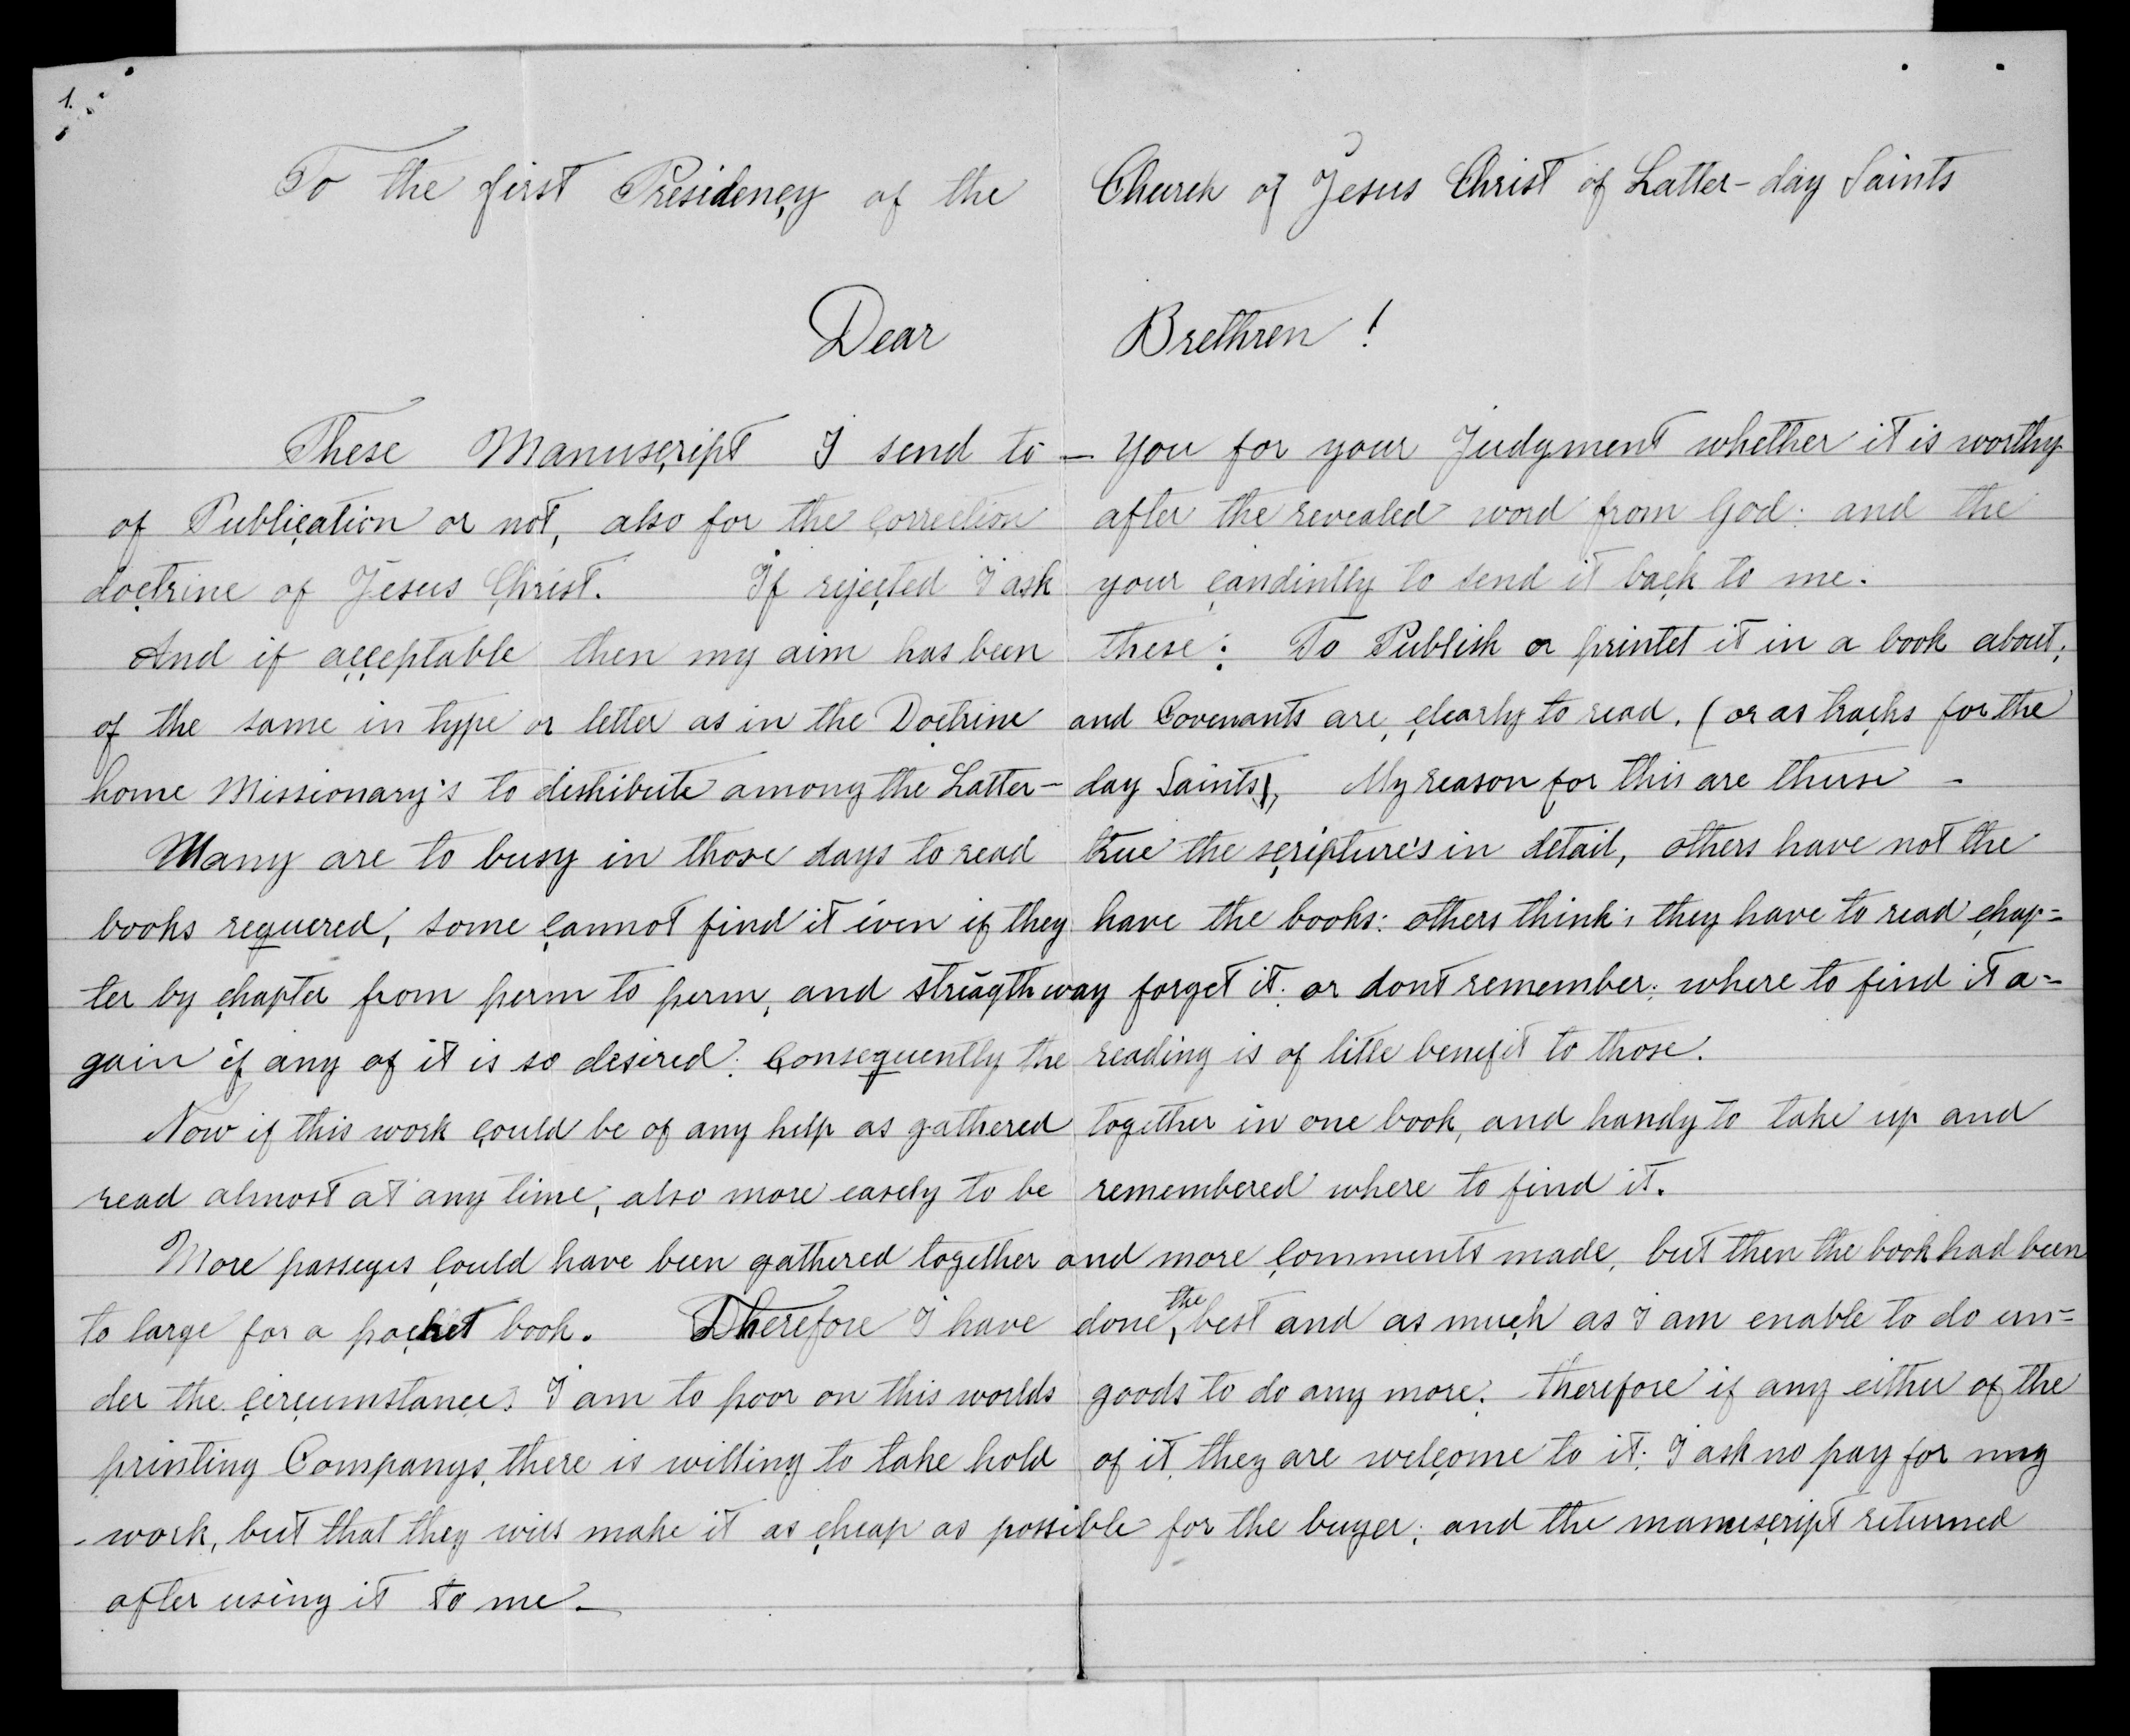 1.
To the first Presidency of the Church of Jesus Christ of Latter-day Saints
Dear Brethren!
These Manuscript I send to - you for your Judgment whether it is worthy
of Publication or not, also for the correction after the revealed word from God: and the
doctrine of Jesus Christ. If rejected I ask your candintly to send it back to me.
And if acceptable then my aim has been these: To Publish or printet it in a book about,
of the same in type or letter as in the Doctrine and Covenants are, clearly to read. (or as tracks for the
home Missionary's to distribute among the Latter-day Saints), My reason for this are these -
Many are to busy in those days to read true the scripture's in detail, others have not the
books requered, some cannot find it iven if they have the books: others think; they have to read chap=
ter by chapter from perm to perm, and striagthway forget it: or dont remember; where to find it a=
gain if any of it is so desired: Consequently the reading is of litle benefit to those.
Now if this work could be of any help as gathered together in one book, and handy to take up and
read almost at any time; also more easely to be remembered where to find it.
More passeges could have been gathered together and more comments made, but then the book had been
to large for a pocket book. Therefore I have done, the best and as much as I am enable to do un=
der the circumstance: I am to poor on this worlds goods to do any more: therefore if any either of the
printing Companys, there is willing to take hold of it, they are welcome to it: I ask no pay for my
work, but that they will make it as cheap as possible for the buyer; and the manuscript returned
after using it to me.-